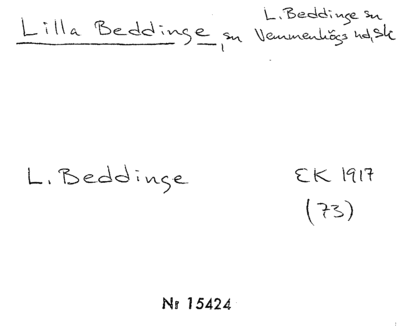 Lilla Beddinge, sn
L. Beddinge sn
Vemmenhögs hd, Sk
L. Beddinge
EK 1917
(73)
Nr 15424